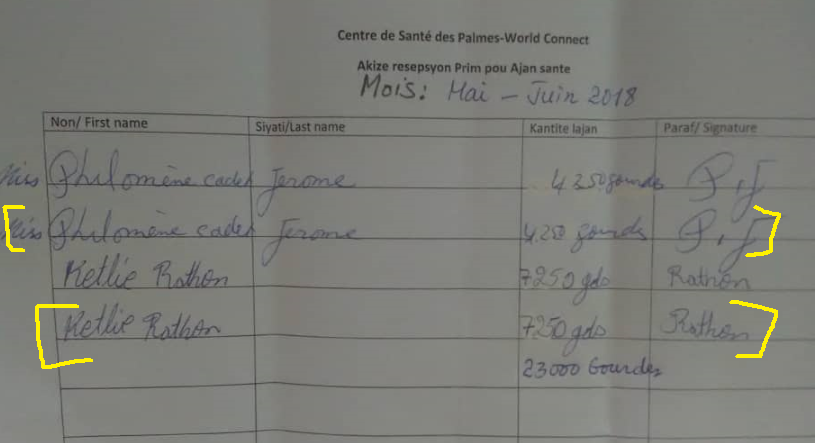 Centre de Santé des Palmes-World Connect
Akize resepsyon Prim pou Ajan sante
Mois: Mai - Juin 2018
Non/ First name Siyati/Last name Kantite lajan Paraf/ Signature
Miss Philomène cadet Jerome 4250 gourdes P.J
Miss Philomène cadet Jerome 4250 gourdes P.J
Ketlie Rathon 7250 gds Rathon
Ketlie Rathon 7250 gds Rathon
23000 Gourdes